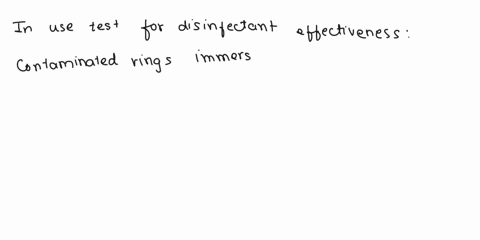 In use test for disinfectant effectiveness:
Contaminated rings immers